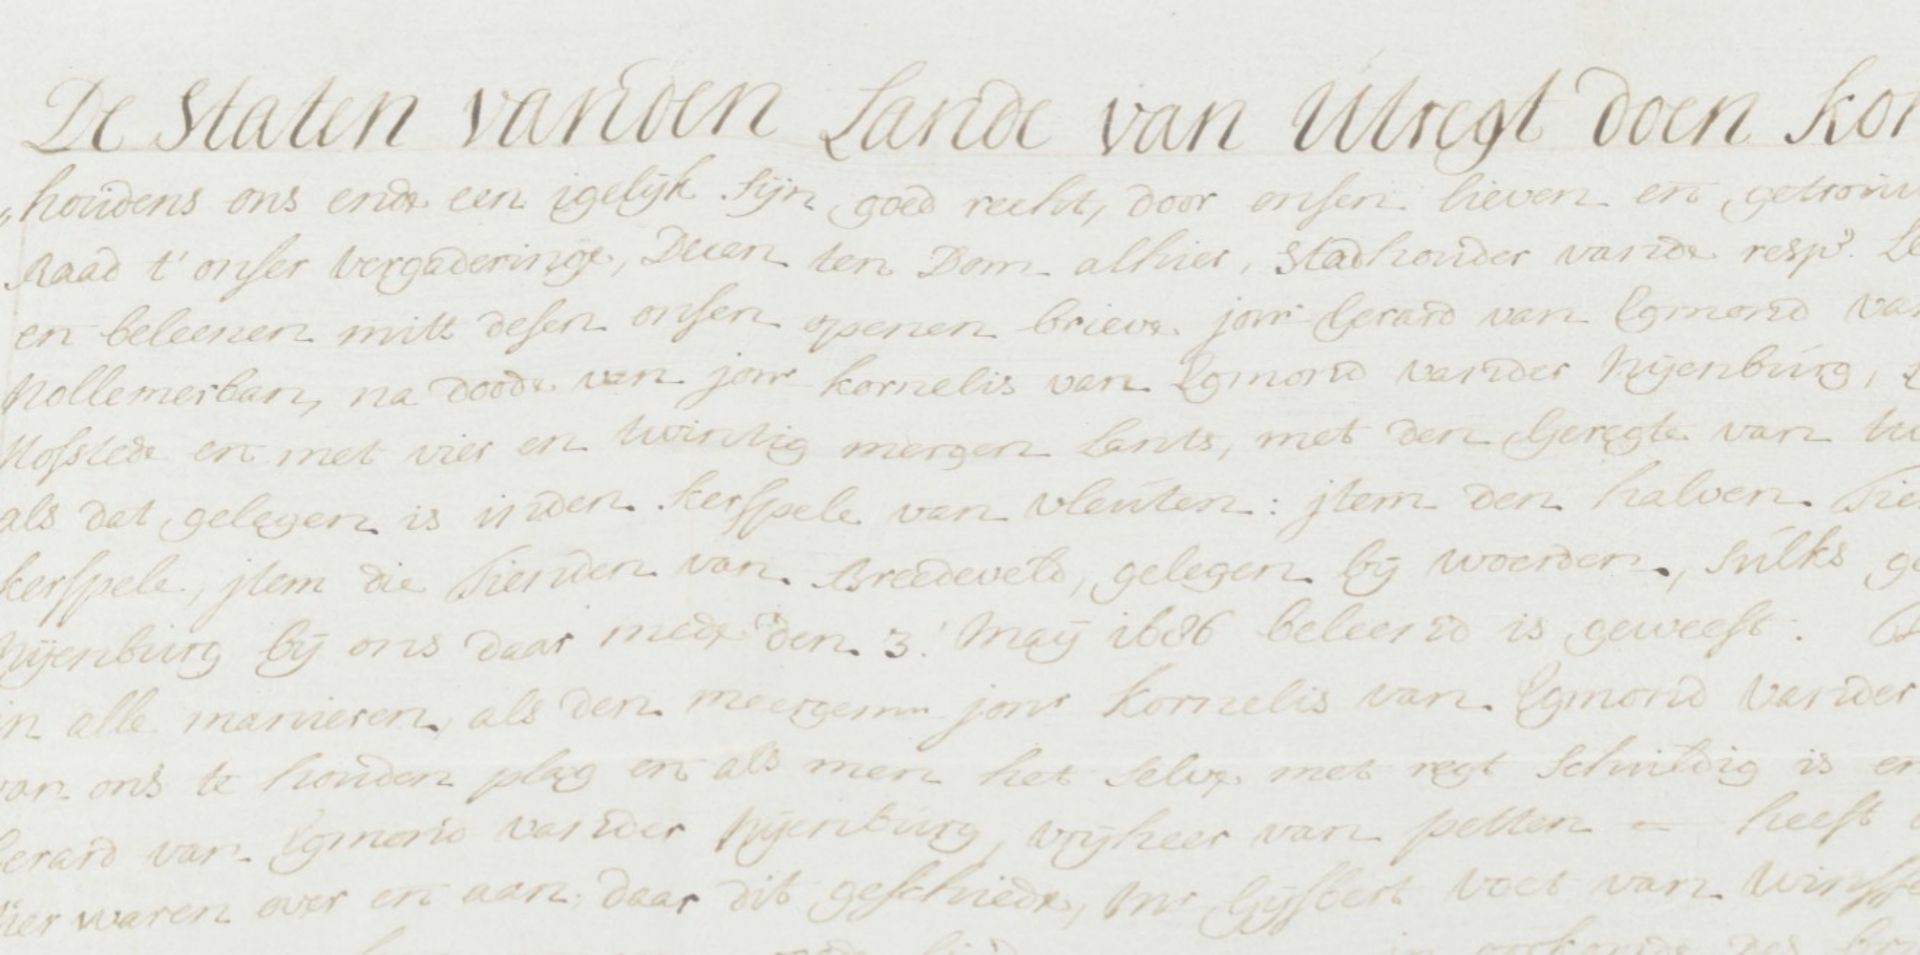 De Staten vanden Lande van Utregt doen kon
houdens ons ende een igelijk sijn goed recht, door onsen lieven en getrouw
Raad t' onser vergaderinge, Deen ten Dom alhier, Stadhouder vande resp.e Le
en beleenen mitt desen onsen openen brieve jonr Gerard van Egmond van
Nollemerban, na doode van jonr Kornelis van Egmond vander Nijenburg,
Hofstede en met vier en twintig mergen Lants, met den Geregte van
als dat gelegen is inden kerspele van vleuten: jtem den halven Tie
kerspele, jtem die Tienden van Breedeveld, gelegen bij woerden, sulks ge
Nijenburg bij ons daar mede den 3. Maij 1686 beleend is geweest.
in alle manieren als den meergem jonr Kornelis van Egmond vander
van ons te houden plag en als men het selve met regt schuldig is en
Gerard van Egmond vander Nijenburg, vrijheer van petten - heeft
Hier waren over en aan daar dit geschiede, Mr Gijsbert Voet van Winsse